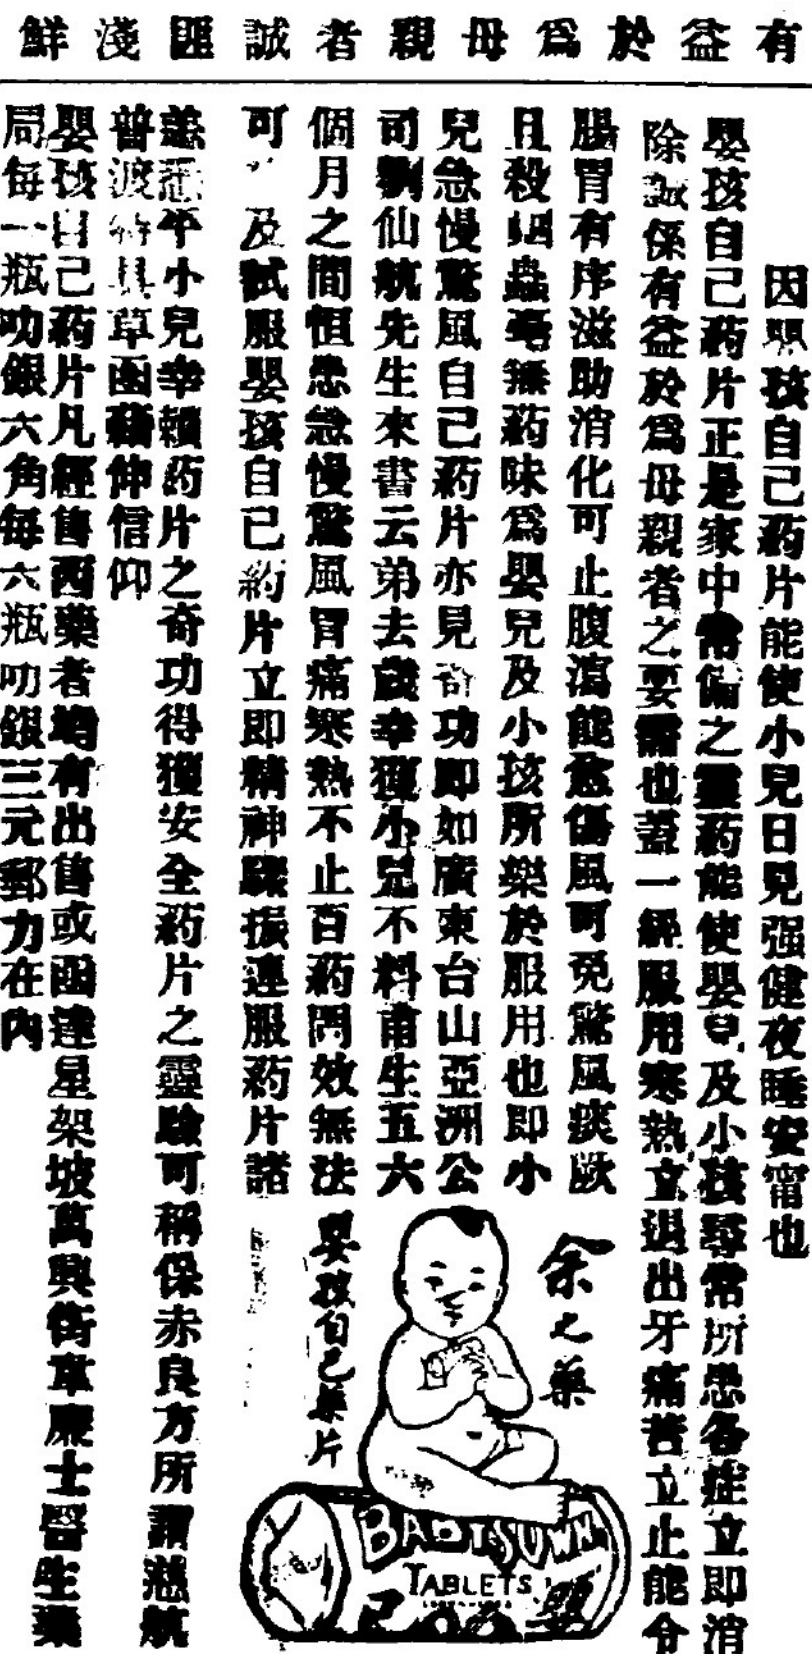 有益於為母親者誠匪淺鮮
因嬰孩自己葯片能使小兒日見强健夜睡安甯也
嬰孩自己葯片正是家中常備之靈葯能使嬰兒及小孩尋常所患各症立即消
除誠係有益於為母親者之要需也蓋一經服用寒熱立退出牙痛苦立止能令
腸胃有序滋助消化可止腹瀉能愈傷風可免驚風痰厥
且殺蛔蟲毫無葯味為嬰兒及小孩所樂於服用也即小
兒急慢驚風自己葯片亦見奇功即如廣東台山亞洲公
司劉仙航先生來書云弟去歲幸獲小兒不料甫生五六
個月之間恒患急慢驚風胃痛寒熱不止百葯罔效無法
可 及試服嬰孩自己葯片立即精神驟振連服葯片諸
恙悉平小兒幸賴葯片之奇功得獲安全葯片之靈驗可稱保赤良方所謂慈航
普渡特具草函藉伸信仰
嬰孩自己葯片凡經售西藥者均有出售或函達星架坡萬興街韋廉士醫生藥
局每一瓶叻銀六角每六瓶叻銀三元郵力在內
余之藥
嬰孩自己藥片
BABY'S OWN
TABLETS